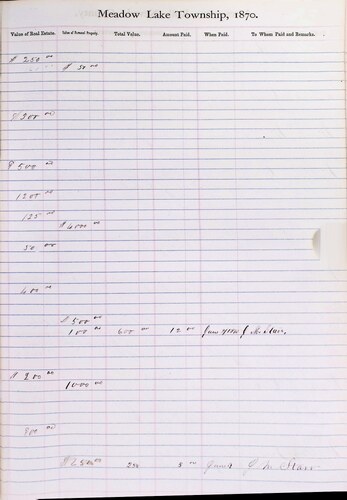 Meadow Lake Township, 1870.
Value of Real Estate. Value of Personal Property. Total Value. Amount Paid. When Paid. To Whom Paid and Remarks.
$ 250 00
$ 50 00
$ 300 00
$ 500 00
1200 00
125 00
$ 4000 00
50 00
400 00
$ 500 00
100 00 600 00 12 00 J. M. Starr,
$ 200 00
1000 00
900 00
$ 2,500 00 250 8 00 J. M. Starr